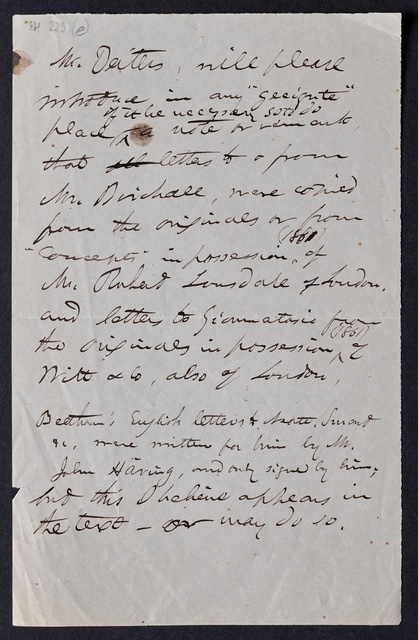 BH 229 (e)
Mr. Deiters, will please
introduce in any "geeignete"
if it be necessary so to do
place a note or remark,
that all letters to & from
Mr. Birchall, were copied
from the originals or from
(1861)
"Concepts" in possession, of
Mr. Robert Lonsdale of London.
and letters to Giannatasio from
(1861)
the originals in possession of
Witt & Co, also of London.
Beethovn's English letters to Neate, Smart
&c, were written for him by Mr.
John Häring, and only signed by him;
but this I believe appears in
the text – or may do so.